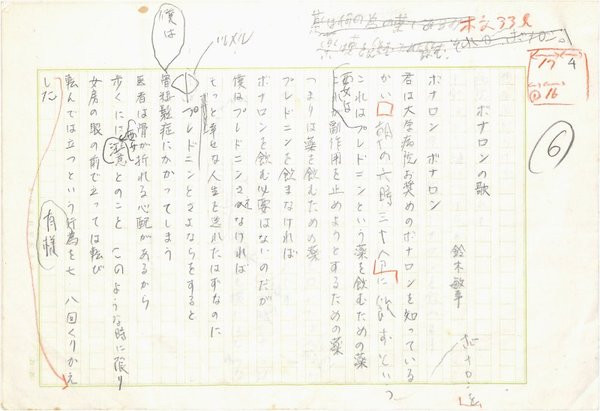 ボナロンの歌
鈴木敏幸
ボナロン ボナロン
君は大学病院お奨めのボナロンを知っている
かい 朝の六時三十分に飲むという
これはプレドニンという薬を飲むための薬
副作用を止めようとするための薬
つまりは薬を飲むための薬
プレドニンを飲まなければ
ボナロンを飲む必要はないのだが
僕はプレドニンさえなければ
もっと幸せな人生を送れたはずなのに
プレドニンとさよならをすると
僕は
骨粗鬆症にかかってしまう
医者は骨が折れる心配があるから
歩くには注意とのこと このような時に限り
女房の眼の前で立っては転び
転んでは立つという行為を七、八回くりかえ
した
有様
本文33行
17
4
16
6